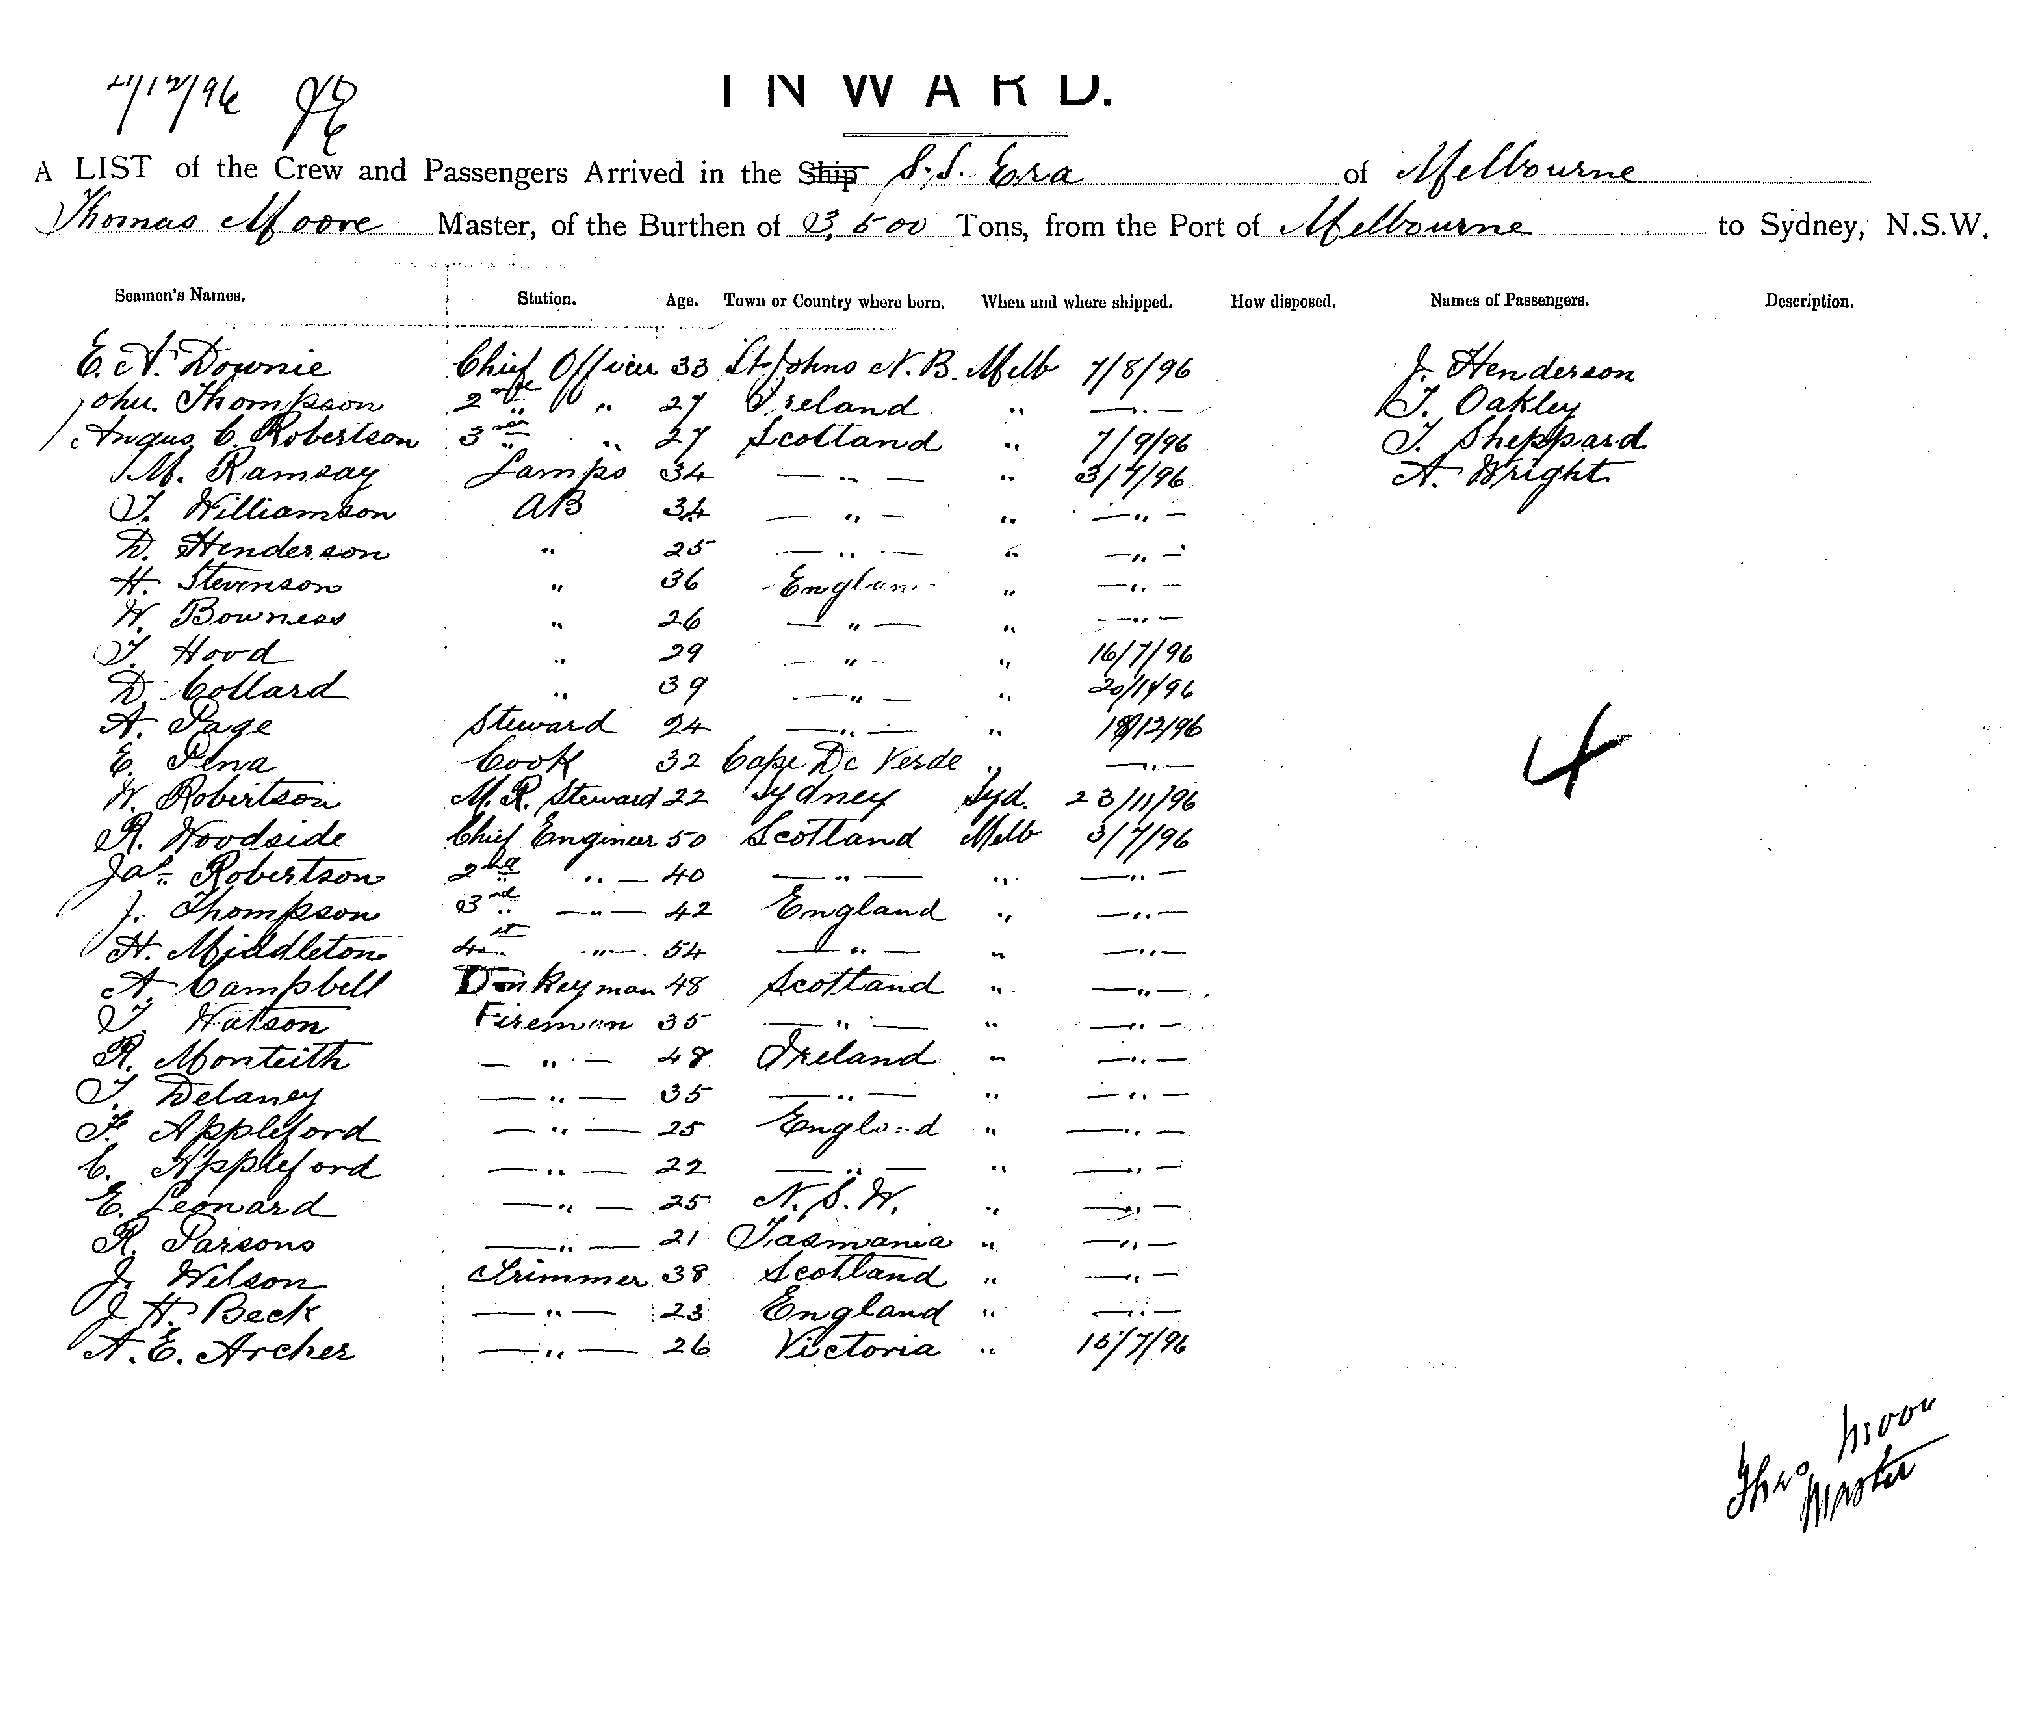 21/12/96
INWARD.
A LIST of the Crew and Passengers Arrived in the Ship S.S. Era of Melbourne
Thomas Moore Master, of the Burthen of 3,500 Tons, from the Port of Melbourne to Sydney, N.S.W.
Seamen's Names. Station. Age. Town or Country where born. When and where shipped. How disposed. Names of Passengers. Description.
E. A. Downie Chief Officer 33 St Johns N.B. Melb 7/8/96 J. Henderson
John Thompson 2nd " 27 Ireland " —"— T. Oakley
Angus C. Robertson 3rd " 27 Scotland " 7/9/96 T. Sheppard
M. Ramsay Lamps 34 —"— " 3/7/96 A. Wright
T. Williamson AB 34 —"— " —"—
D. Henderson " 25 —"— " —"—
H. Stevenson " 36 England " —"—
W. Bowness " 26 —"— " —"—
T. Hood " 29 —"— " 16/7/96
D. Collard " 39 —"— " 20/11/96
A. Page Steward 24 —"— " /12/96
E. Pena Cook 32 Cape De Verde " —"—
W. Robertson M.R. Steward 22 Sydney Syd. 23/11/96
R. Woodside Chief Engineer 50 Scotland Melb 3/7/96
Jas. Robertson 2nd "— 40 —"— " —"—
J. Thompson 3rd —"— 42 England " —"—
H. Middleton 4th —"— 54 —"— " —"—
A. Campbell Donkeyman 48 Scotland " —"—
T. Watson Fireman 35 —"— " —"—
R. Monteith —"— 48 Ireland " —"—
T. Delaney —"— 35 —"— " —"—
F. Appleford —"— 25 England " —"—
C. Appleford —"— 22 —"— " —"—
E. Leonard —"— 25 N.S.W. " —"—
R. Parsons —"— 21 Tasmania " —"—
J. Wilson Trimmer 38 Scotland " —"—
J. H. Beck —"— 23 England " —"—
A. E. Archer —"— 26 Victoria " 15/7/96
4
Thos Moore
Master